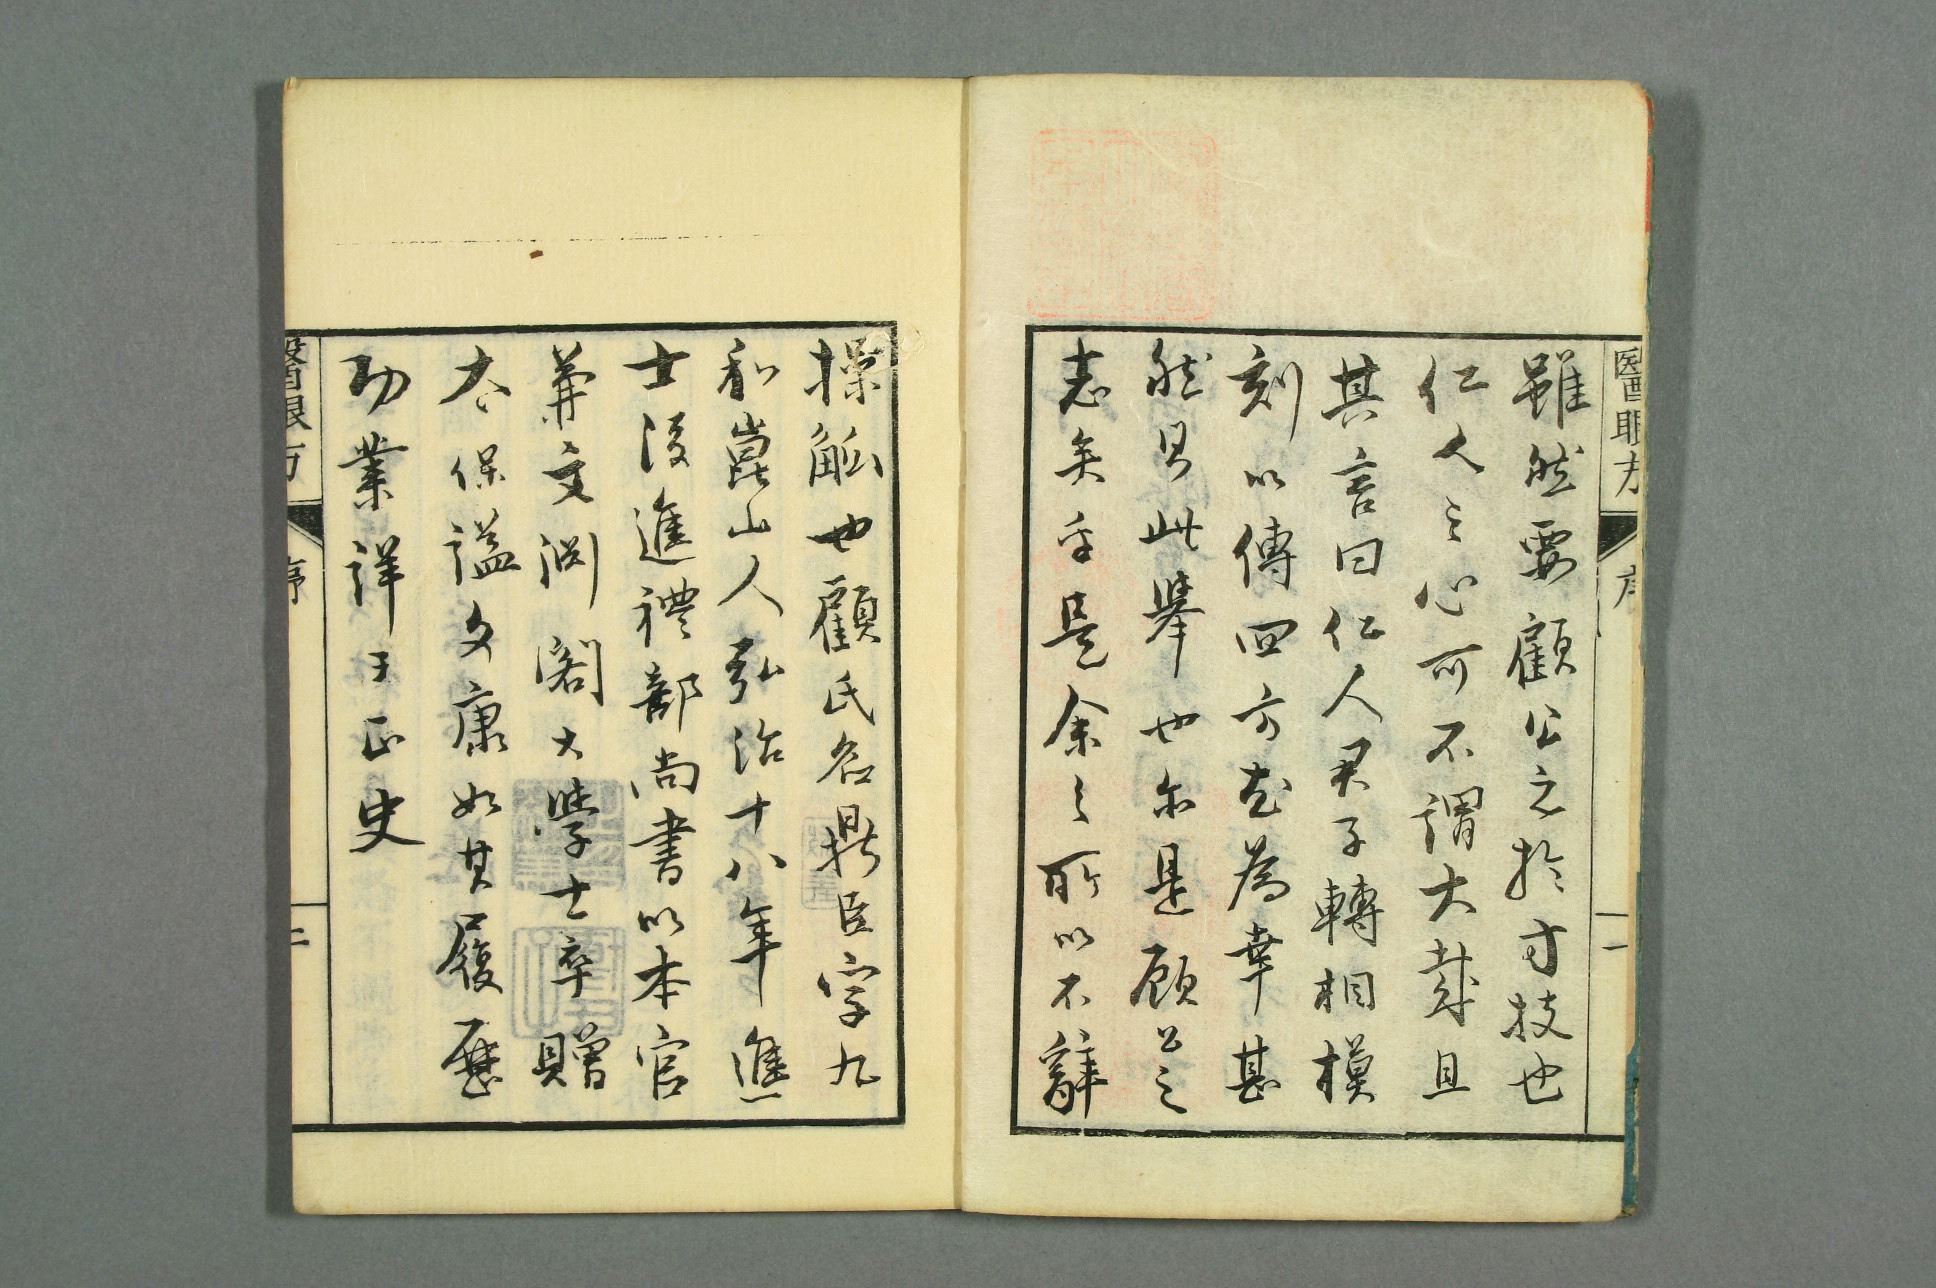 醫眼方
序
一
雖然要顧公之於方技也
仁人之心可不謂大哉且
其言曰仁人君子轉相模
刻以傳四方尤為幸甚
然則此舉也亦是顧公之
志矣乎是余之所以不辭
操觚也顧氏名鼎臣字九
和崑山人弘治十八年進
士後進禮部尚書以本官
兼文淵閣大學士卒贈
太保謚文康如其履歷
功業詳于正史
醫眼方
序
二